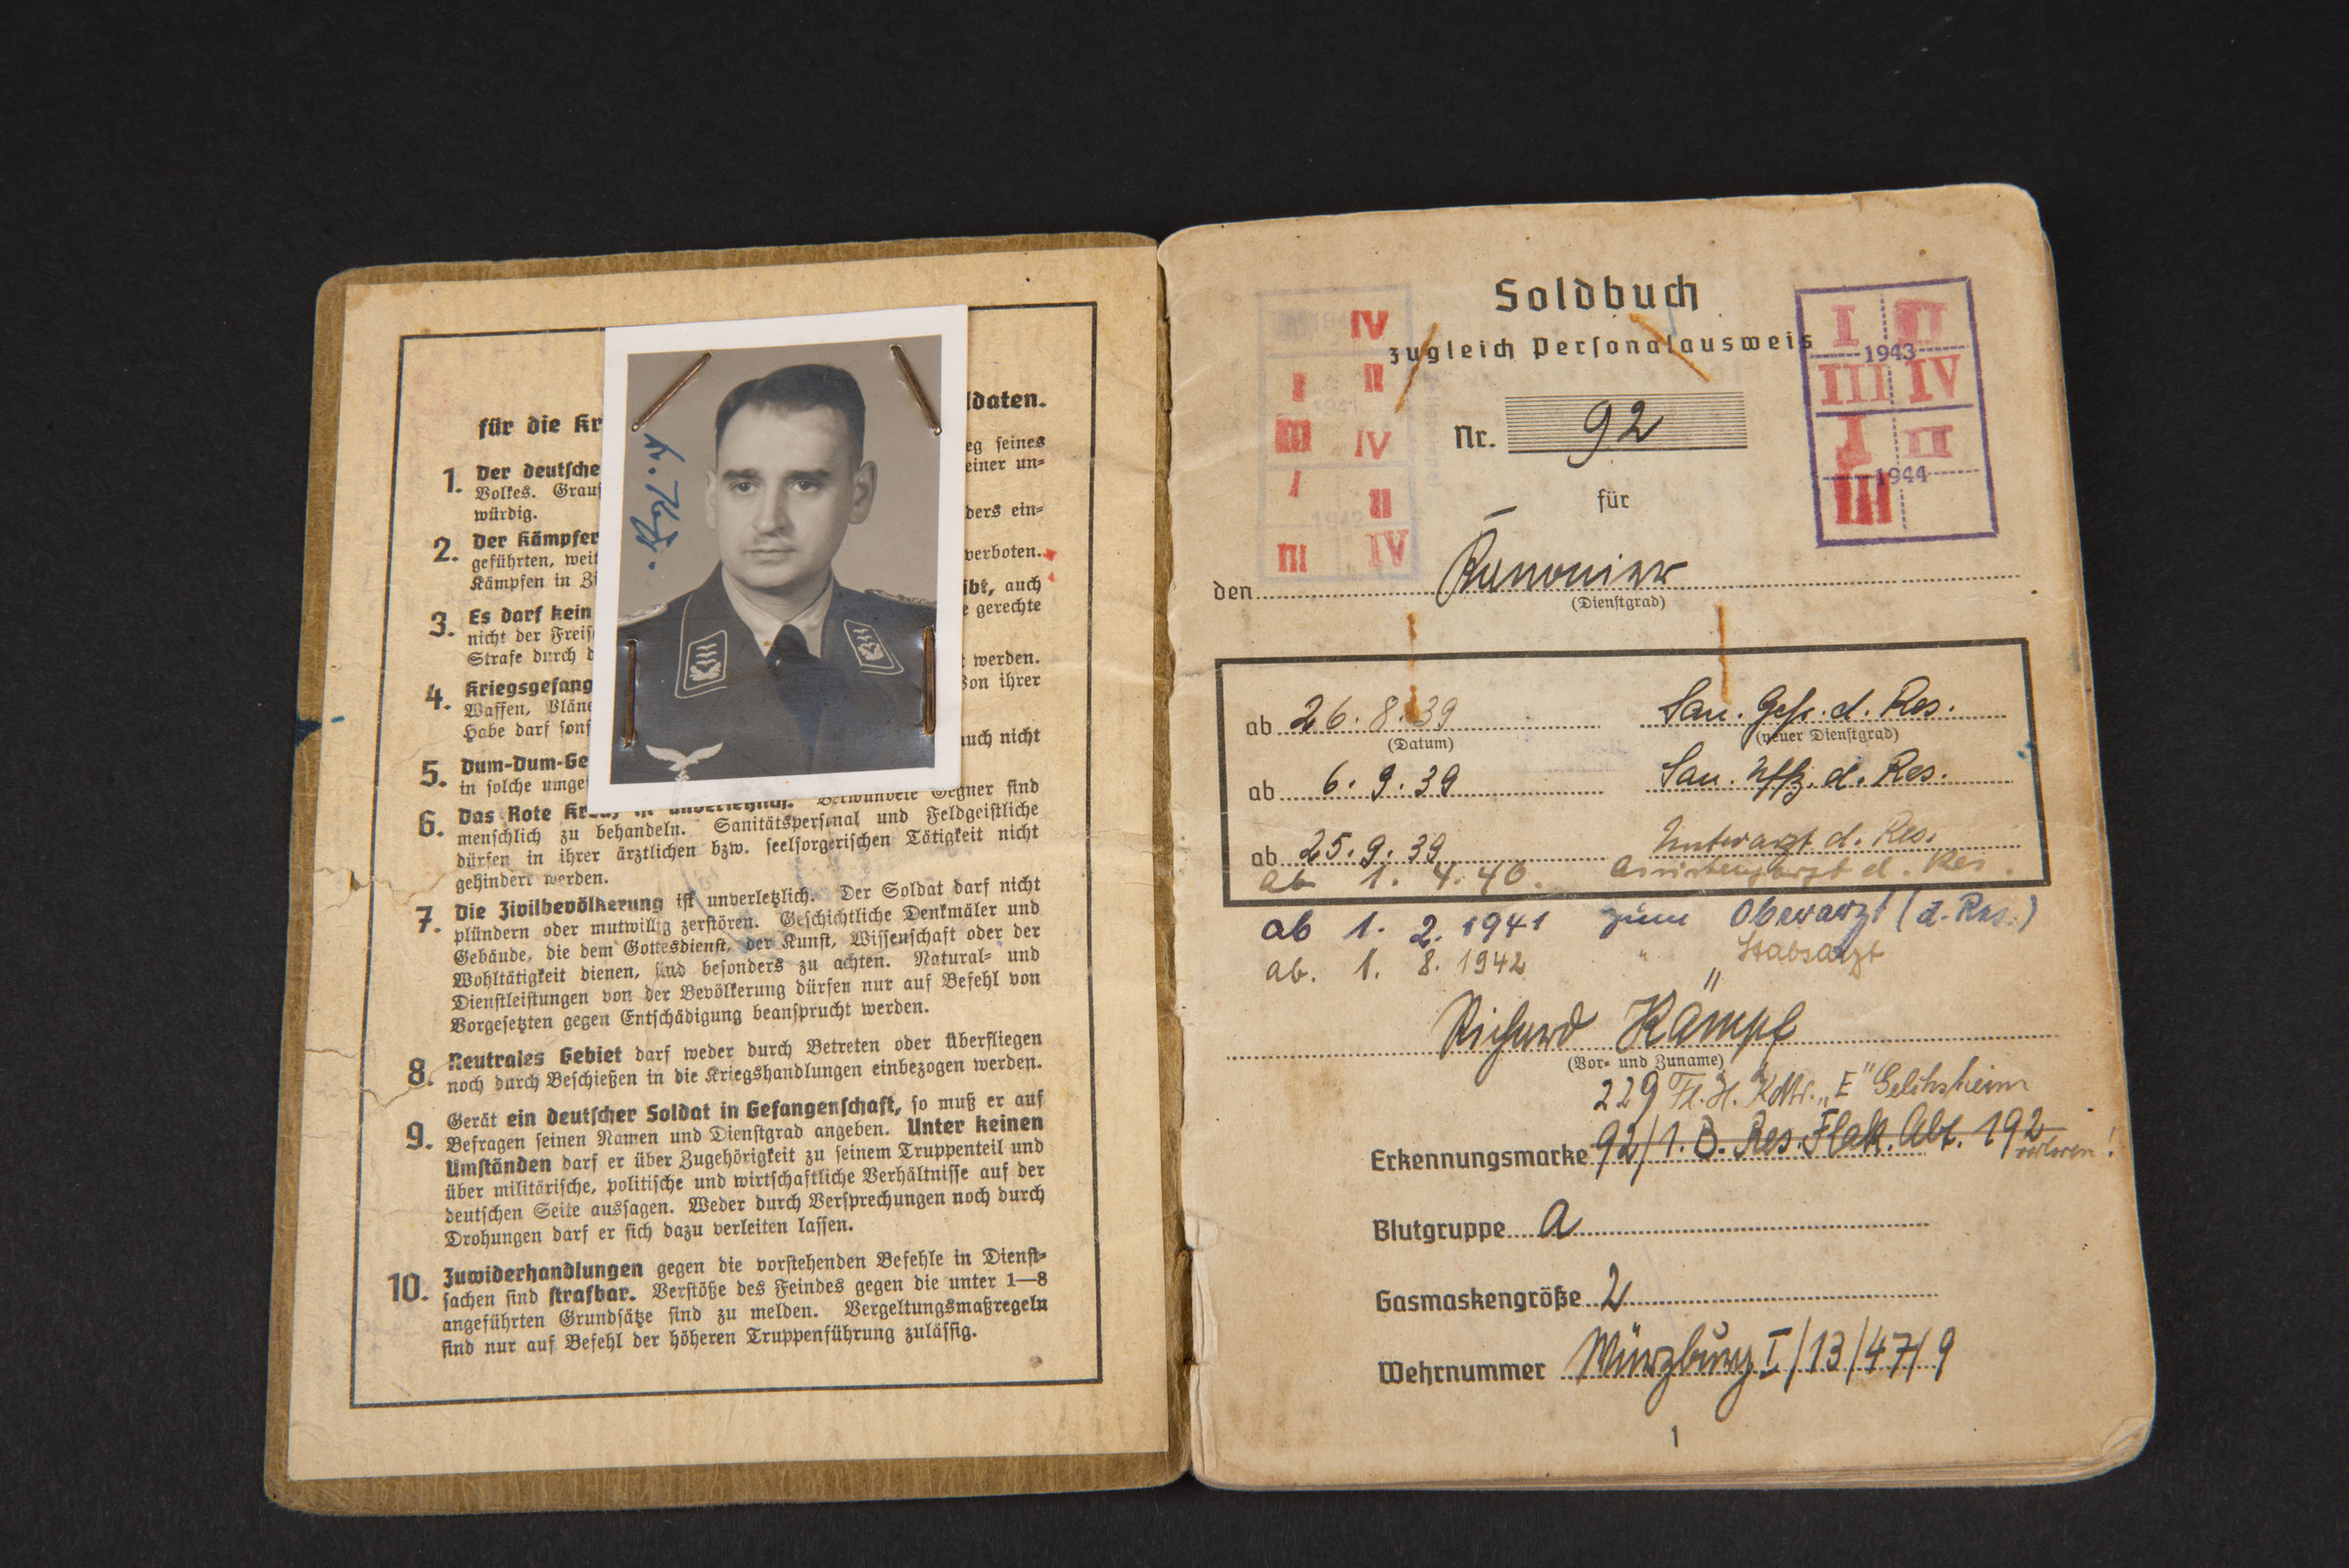 ldaten.
für die Kr
eg seines
1. Der deutsche
einer un=
Volkes. Grauſ
würdig.
ders ein=
2. Der Kämpfer
geführten, weit
verboten.
Kämpfen in Zi
ibt, auch
3. Es darf kein
e gerechte
nicht der Freiſ
Strafe durch d
t werden.
4. Kriegsgefang
Von ihrer
Waffen, Pläne
Habe darf ſonſ
auch nicht
5. Dum-Dum-Ge
in ſolche umge
6. Das Rote Kreuz iſt unverletzlich. Verwundete Gegner ſind
menſchlich zu behandeln. Sanitätsperſonal und Feldgeiſtliche
dürfen in ihrer ärztlichen bzw. ſeelſorgeriſchen Tätigkeit nicht
gehindert werden.
7. Die Zivilbevölkerung iſt unverletzlich. Der Soldat darf nicht
plündern oder mutwillig zerſtören. Geſchichtliche Denkmäler und
Gebäude, die dem Gottesdienſt, der Kunſt, Wiſſenſchaft oder der
Wohltätigkeit dienen, ſind beſonders zu achten. Natural= und
Dienſtleiſtungen von der Bevölkerung dürfen nur auf Befehl von
Vorgeſetzten gegen Entſchädigung beanſprucht werden.
8. Neutrales Gebiet darf weder durch Betreten oder Überfliegen
noch durch Beſchießen in die Kriegshandlungen einbezogen werden.
9. Gerät ein deutſcher Soldat in Gefangenſchaft, ſo muß er auf
Befragen ſeinen Namen und Dienſtgrad angeben. Unter keinen
Umſtänden darf er über Zugehörigkeit zu ſeinem Truppenteil und
über militäriſche, politiſche und wirtſchaftliche Verhältniſſe auf der
deutſchen Seite ausſagen. Weder durch Verſprechungen noch durch
Drohungen darf er ſich dazu verleiten laſſen.
10. Zuwiderhandlungen gegen die vorſtehenden Befehle in Dienſt=
ſachen ſind ſtrafbar. Verſtöße des Feindes gegen die unter 1—8
angeführten Grundſätze ſind zu melden. Vergeltungsmaßregeln
ſind nur auf Befehl der höheren Truppenführung zuläſſig.
Soldbuch
zugleich Perſonalausweis
Nr. 92
für
den Kanonier
(Dienſtgrad)
IV
I II
1941
III IV
I II
1942
III IV
I II
1943
III IV
I II
1944
III
ab 26.8.39 San. Gefr. d. Res.
(Datum) (neuer Dienſtgrad)
ab 6.9.39 San. Uffz. d. Res.
ab 25.9.39 Unterarzt d. Res.
ab 1. 4. 40. Assistenzarzt d. Res.
ab 1. 2. 1941 zum Oberarzt (d. Res.)
ab. 1. 8. 1942 " " Stabsarzt
Richard Kämpf
(Vor= und Zuname)
229 Fl. H. Kdtr. „E" Gelchsheim
Erkennungsmarke 92/1. B. Res. Flak. Abt. 192 verloren!
Blutgruppe A
Gasmaskengröße 2
Wehrnummer Würzburg I/13/47/9
1